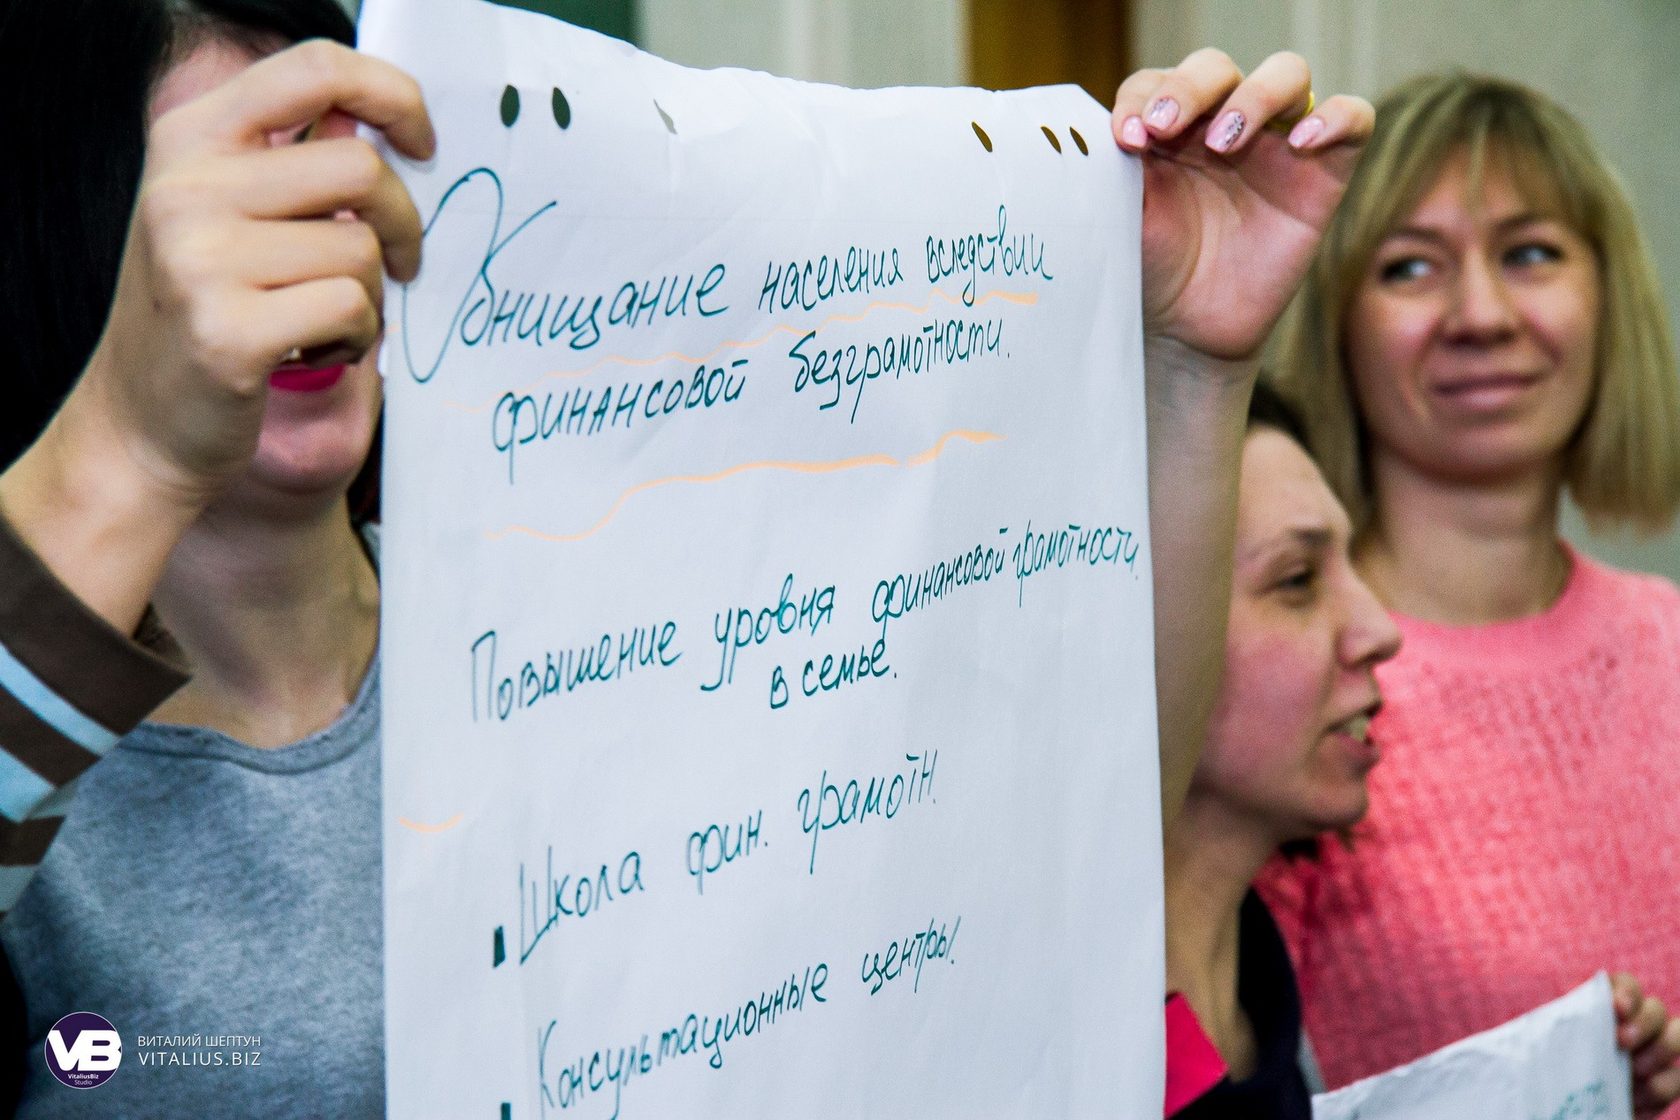 Обнищание населения вследствии
финансовой безграмотности.
Повышение уровня финансовой грамотности
в семье.
Школа фин. грамотн.
Консультационные центры.
VB
VitaliusBiz
Studio
ВИТАЛИЙ ШЕПТУН
VITALIUS.BIZ